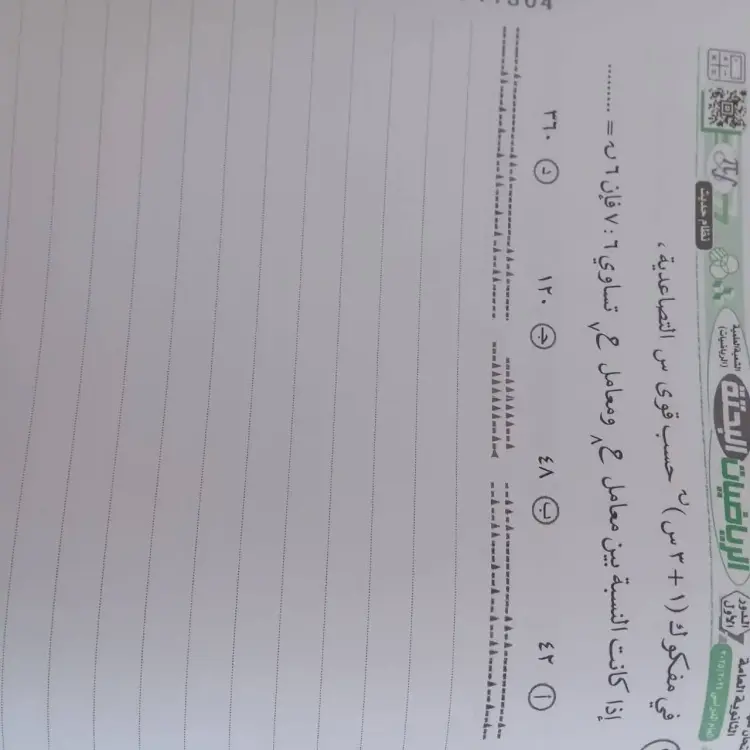 الثانوية العامة
الدور الأول
الرياضيات البحتة
الشعبة العلمية
(الرياضيات)
نظام حديث
في مفكوك (١ + ٣ س)ⁿ حسب قوى س التصاعدية،
إذا كانت النسبة بين معامل ح٨ ومعامل ح٧ تساوي ٦ : ٧ فإن ٦ ن = .........
أ ٤٢ ب ٤٨ ج ١٢٠ د ٣٦٠